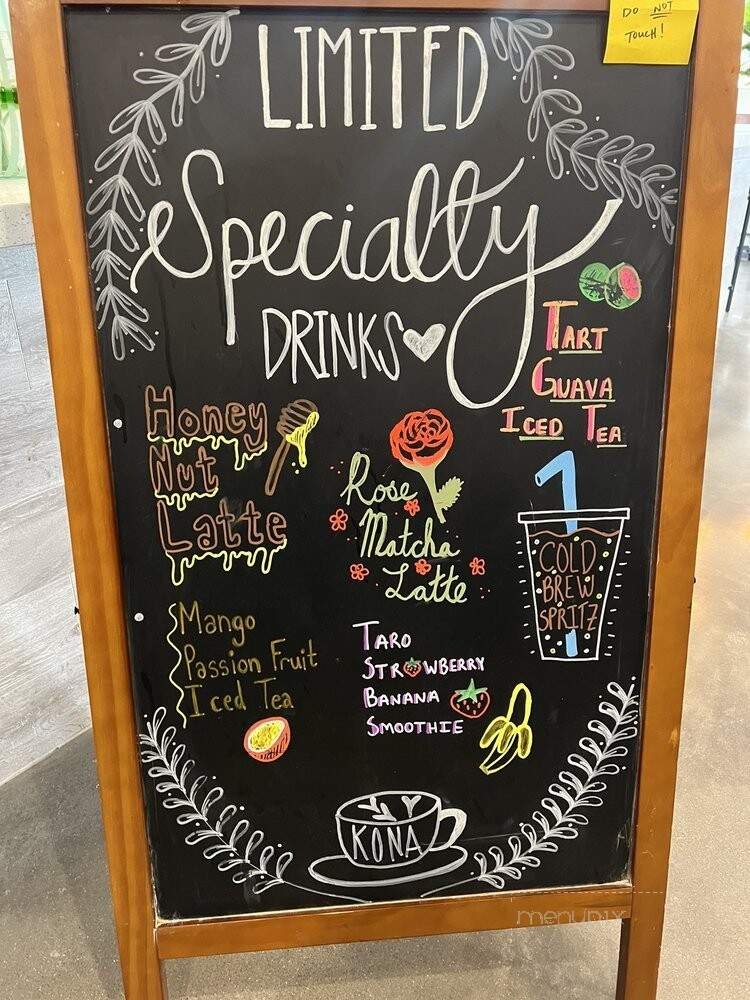 DO NOT
TOUCH!
LIMITED
Specialty
DRINKS
TART
GUAVA
ICED TEA
Honey
Nut
Latte
Rose
Matcha
Latte
COLD
BREW
SPRITZ
Mango
Passion Fruit
Iced Tea
TARO
STRAWBERRY
BANANA
SMOOTHIE
KONA
menupix